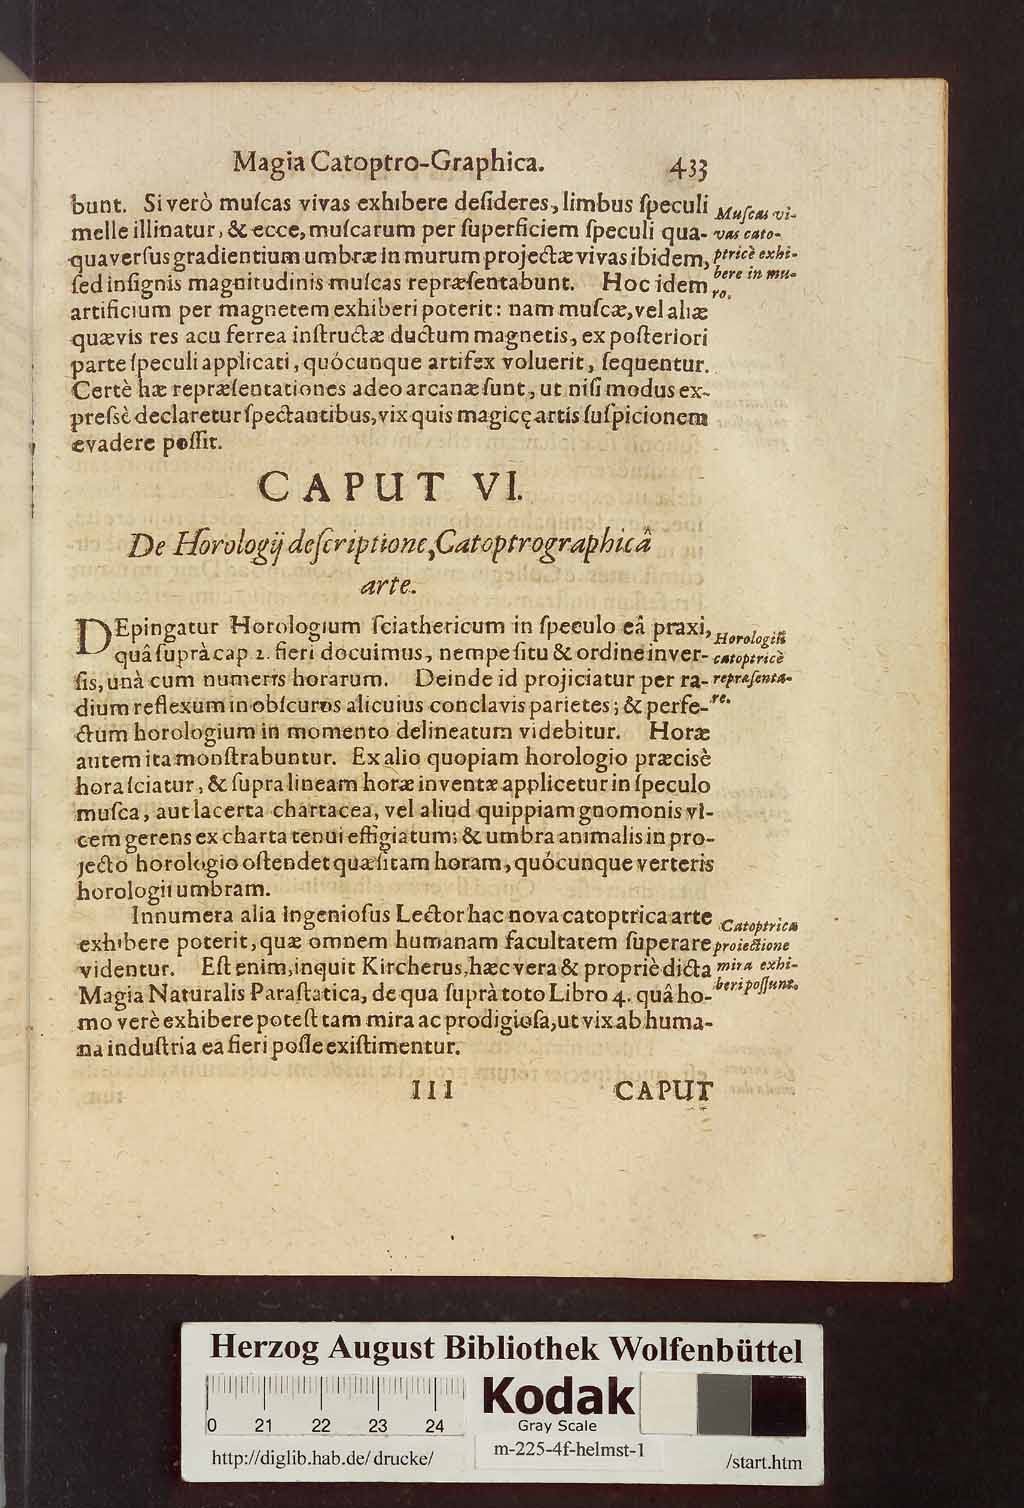 Magia Catoptro-Graphica. 433
bunt. Si verò muſcas vivas exhibere deſideres, limbus ſpeculi
melle illinatur, & ecce, muſcarum per ſuperficiem ſpeculi qua-
quaverſus gradientium umbræ in murum projectæ vivas ibidem,
ſed inſignis magnitudinis muſcas repræſentabunt. Hoc idem
artificium per magnetem exhiberi poterit: nam muſcæ, vel aliæ
quævis res acu ferrea inſtructæ ductum magnetis, ex poſteriori
parte ſpeculi applicati, quócunque artifex voluerit, ſequentur.
Certè hæ repræſentationes adeo arcanæ ſunt, ut niſi modus ex-
preſsè declaretur ſpectantibus, vix quis magicę artis ſuſpicionem
evadere poſſit.
Muſcas vi-
vas cato-
ptricè exhi-
bere in mu-
ro.
CAPUT VI.
De Horologij deſcriptione, Catoptrographicâ
arte.
DEpingatur Horologium ſciathericum in ſpeculo eâ praxi,
quâ ſuprà cap 2. fieri docuimus, nempe ſitu & ordine inver-
ſis, unà cum numeris horarum. Deinde id projiciatur per ra-
dium reflexum in obſcuros alicuius conclavis parietes; & perfe-
ctum horologium in momento delineatum videbitur. Horæ
autem ita monſtrabuntur. Ex alio quopiam horologio præcisè
hora ſciatur, & ſupra lineam horæ inventæ applicetur in ſpeculo
muſca, aut lacerta chartacea, vel aliud quippiam gnomonis vi-
cem gerens ex charta tenui effigiatum; & umbra animalis in pro-
jecto horologio oſtendet quæſitam horam, quócunque verteris
horologii umbram.
Horologiũ
catoptricè
repræſenta-
re.
Innumera alia ingenioſus Lector hac nova catoptrica arte
exhibere poterit, quæ omnem humanam facultatem ſuperare
videntur. Eſt enim, inquit Kircherus, hæc vera & propriè dicta
Magia Naturalis Paraſtatica, de qua ſuprà toto Libro 4. quâ ho-
mo verè exhibere poteſt tam mira ac prodigioſa, ut vix ab huma-
na induſtria ea fieri poſſe exiſtimentur.
Catoptrica
proiectione
mira exhi-
beri poſſunt.
III CAPUT
Herzog August Bibliothek Wolfenbüttel
0 21 22 23 24
Kodak
Gray Scale
http://diglib.hab.de/drucke/
m-225-4f-helmst-1
/start.htm